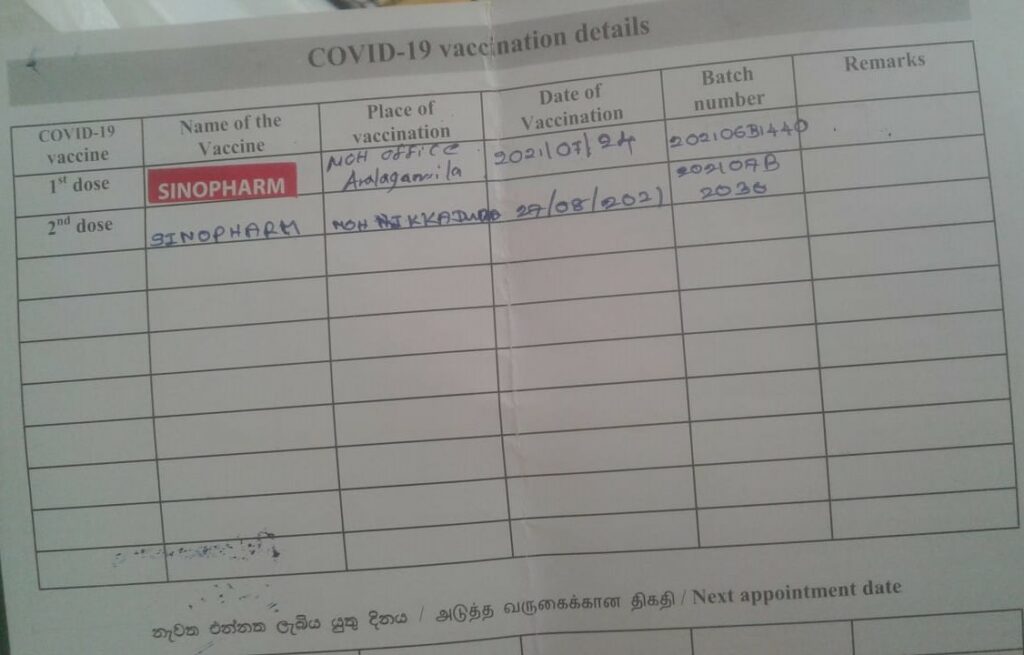 COVID-19 vaccination details
COVID-19 vaccine
Name of the Vaccine
Place of vaccination
Date of Vaccination
Batch number
Remarks
1st dose
SINOPHARM
MOH office
Aralaganwila
2021/07/24
202106B1440
2nd dose
SINOPHARM
MOH HIKKADUWA
27/08/2021
202107B
2036
නැවත එන්නත ලැබිය යුතු දිනය / அடுத்த வருகைக்கான திகதி / Next appointment date